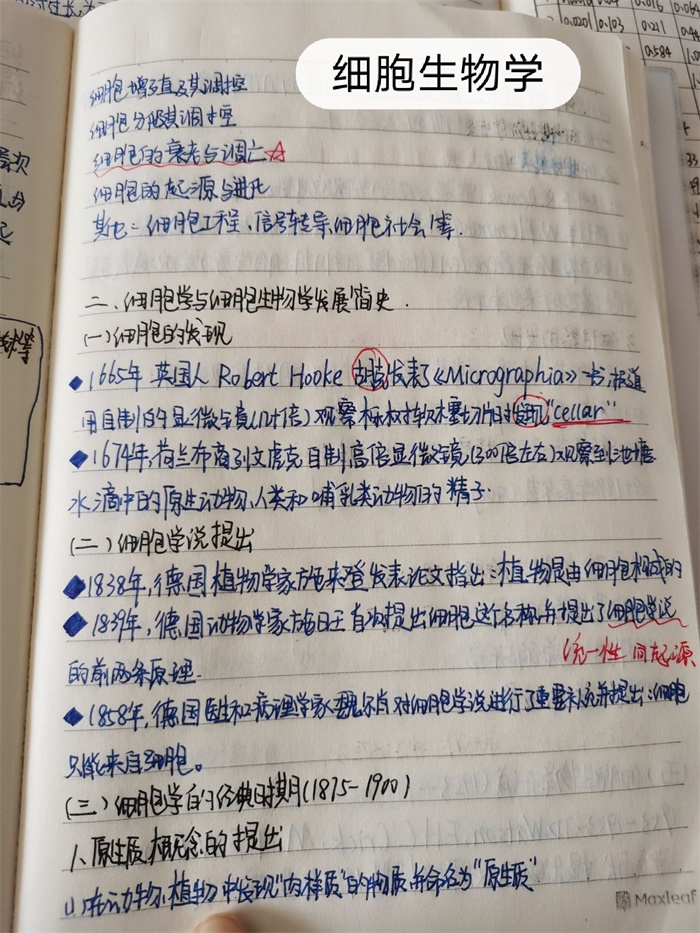 细胞生物学
细胞增殖及其调控
细胞分化及其调控
细胞的衰老与凋亡☆
细胞的起源与进化
其它:细胞工程、信号转导、细胞社会学等.
二、细胞学与细胞生物学发展简史.
(一)细胞的发现
◆1665年 英国人 Robert Hooke 胡克发表了《Micrographia》一书,报道
用自制的显微镜(几十倍)观察栎树软木塞切片时发现“cellar”
◆1674年,荷兰布商列文虎克自制高倍显微镜(300倍左右)观察到池塘
水滴中的原生动物、人类和哺乳类动物的精子.
(二)细胞学说提出
◆1838年,德国植物学家施来登发表论文指出:植物是由细胞构成的
◆1839年,德国动物学家施旺首次提出细胞这个名称,并提出了细胞学说
统一性 同起源
的前两条原理.
◆1858年,德国医生和病理学家魏尔肖对细胞学说进行了重要补充并提出:细胞
只能来自细胞。
(三)细胞学的经典时期(1875-1900)
1、原生质概念的提出
(1)在动物、植物中发现“肉样质”的物质,并命名为“原生质”
Maxleaf
0.016 0.064
0.0201 0.103 0.211
0.584